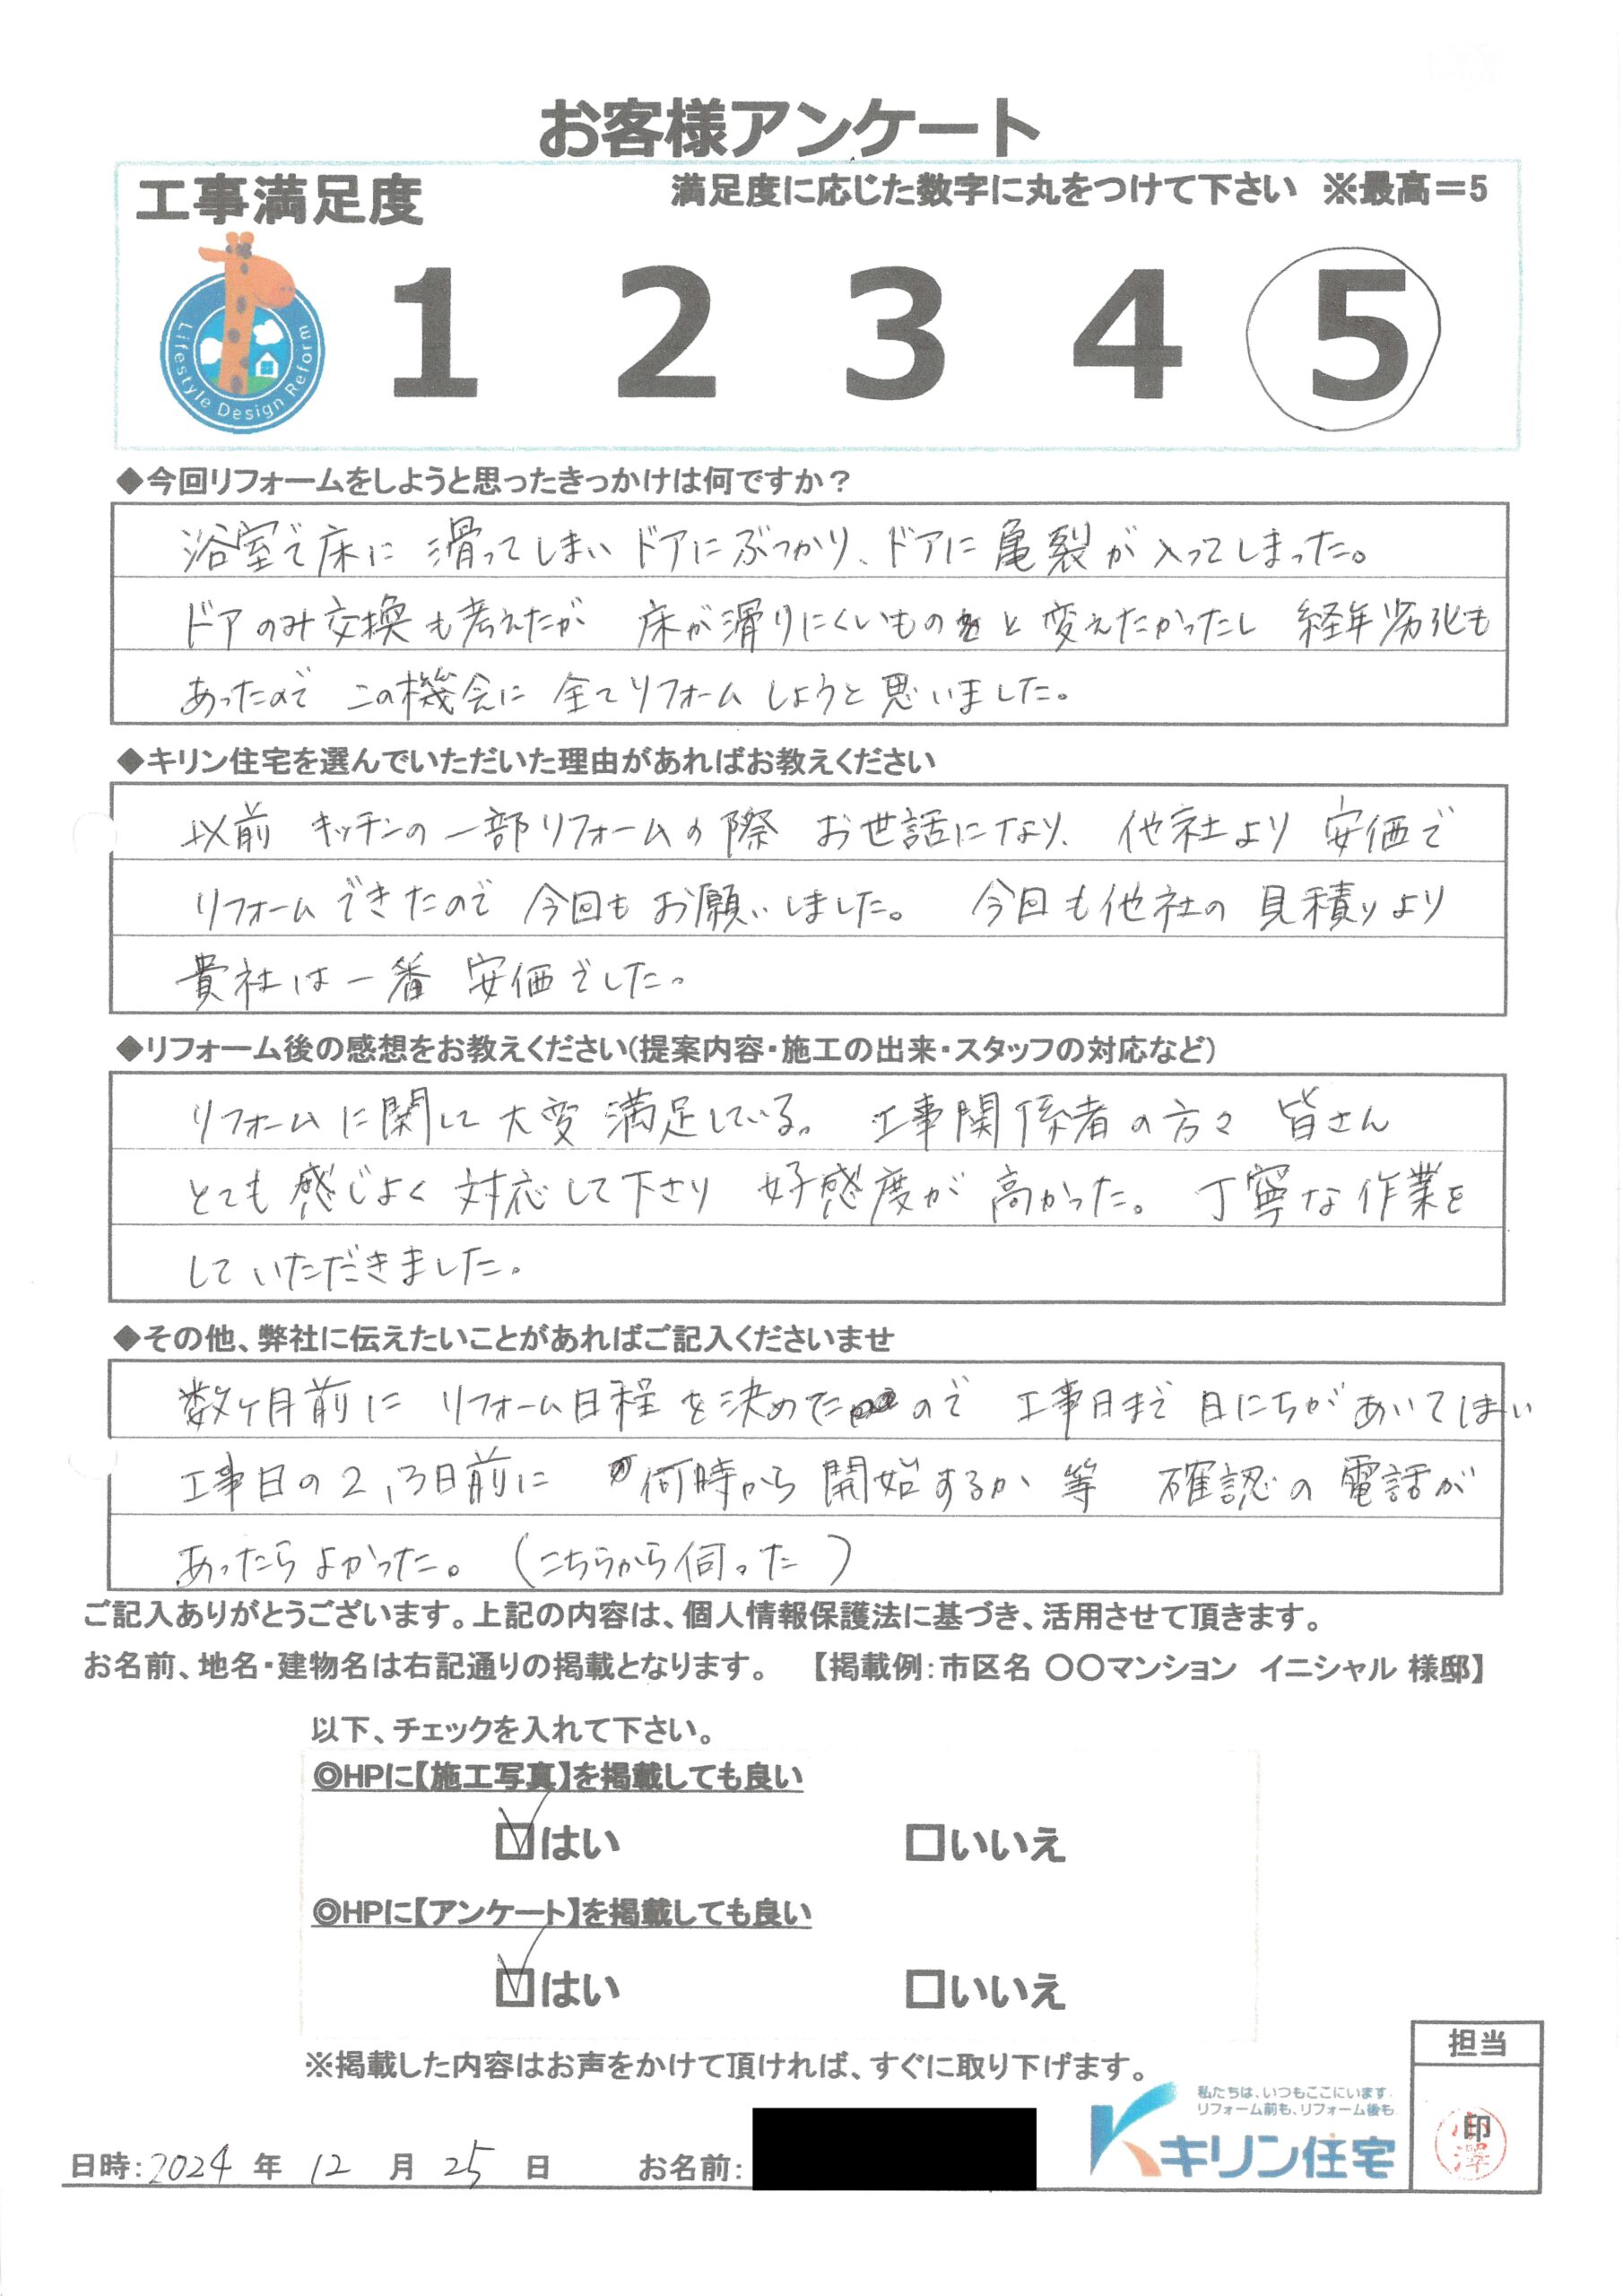 お客様アンケート
工事満足度
満足度に応じた数字に丸をつけて下さい ※最高＝5
Lifestyle Design Reform
1 2 3 4 5
◆今回リフォームをしようと思ったきっかけは何ですか？
浴室で床に滑ってしまいドアにぶつかり、ドアに亀裂が入ってしまった。
ドアのみ交換も考えたが 床が滑りにくいものと変えたかったし 経年劣化も
あったので この機会に 全てリフォームしようと思いました。
◆キリン住宅を選んでいただいた理由があればお教えください
以前 キッチンの一部リフォームの際 お世話になり、他社より 安価で
リフォームできたので 今回もお願いしました。 今回も他社の見積りより
貴社は一番 安価でした。
◆リフォーム後の感想をお教えください（提案内容・施工の出来・スタッフの対応など）
リフォームに関して大変満足している。 工事関係者の方々 皆さん
とても感じよく対応して下さり 好感度が高かった。 丁寧な作業を
していただきました。
◆その他、弊社に伝えたいことがあればご記入くださいませ
数ヶ月前に リフォーム日程を決めたので 工事日まで日にちがあいてしまい
工事日の2,3日前に 何時から開始するか等 確認の電話が
あったらよかった。（こちらから伺った）
ご記入ありがとうございます。上記の内容は、個人情報保護法に基づき、活用させて頂きます。
お名前、地名・建物名は右記通りの掲載となります。 【掲載例：市区名 〇〇マンション イニシャル 様邸】
以下、チェックを入れて下さい。
◎HPに【施工写真】を掲載しても良い
☑はい □いいえ
◎HPに【アンケート】を掲載しても良い
☑はい □いいえ
※掲載した内容はお声をかけて頂ければ、すぐに取り下げます。
担当
印
小澤
私たちは、いつもここにいます。
リフォーム前も、リフォーム後も。
キリン住宅
日時：2024年 12月 25日 お名前：